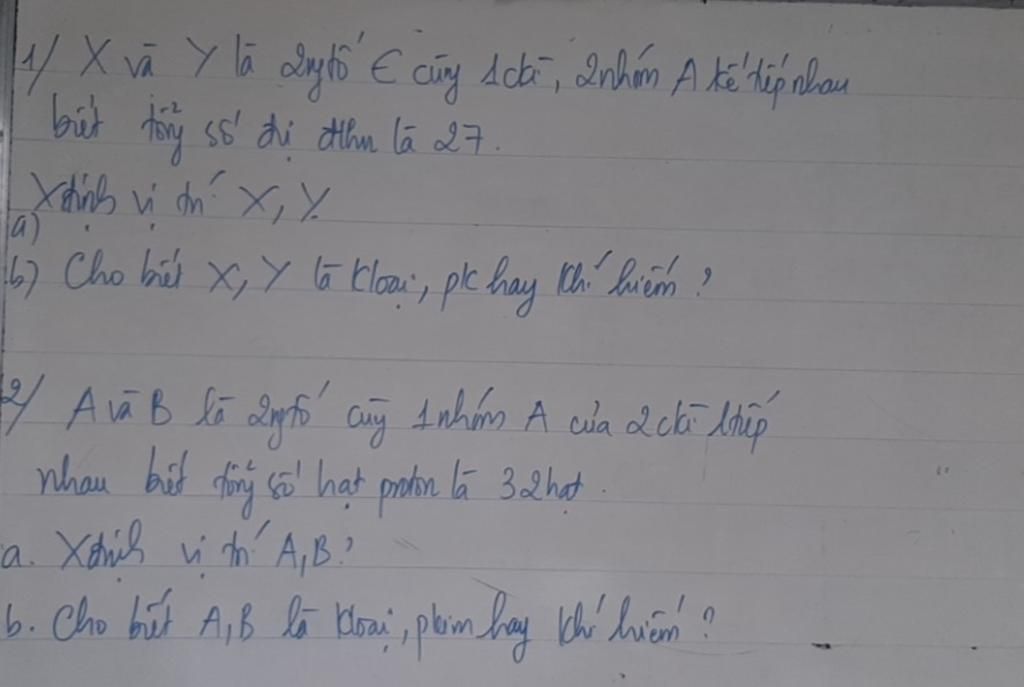 1/ X và Y là 2 ngtố ∈ cùg 1 ckì, 2 nhóm A kế tiếp nhau
biết tổg số đvị đthn là 27.
Xđịnh vị trí X, Y.
a)
b) Cho biết X, Y là kloại, pk hay khí hiếm?
2/ A và B là 2 ngtố cùg 1 nhóm A của 2 ckì ktiếp
nhau biết tổg số hạt proton là 32 hạt.
a. Xđịnh vị trí A, B?
b. Cho biết A, B là kloại, pkim hay khí hiếm?